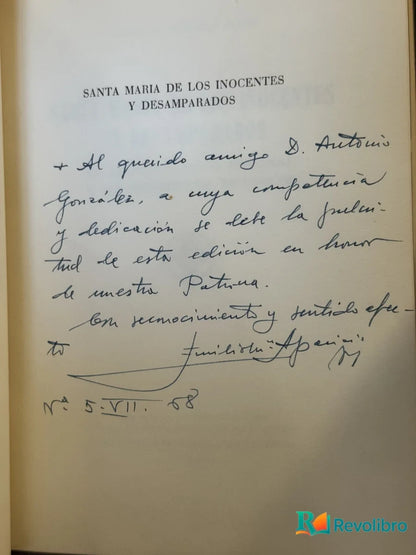 SANTA MARIA DE LOS INOCENTES
Y DESAMPARADOS
+ Al querido amigo D. Antonio
González, a cuya competencia
y dedicación se debe la pulcri-
tud de esta edición en honor
de nuestra Patrona.
Con reconocimiento y sentido afec-
to
Emilio Mª Aparicio
Vª 5-VII. 68
Revolibro